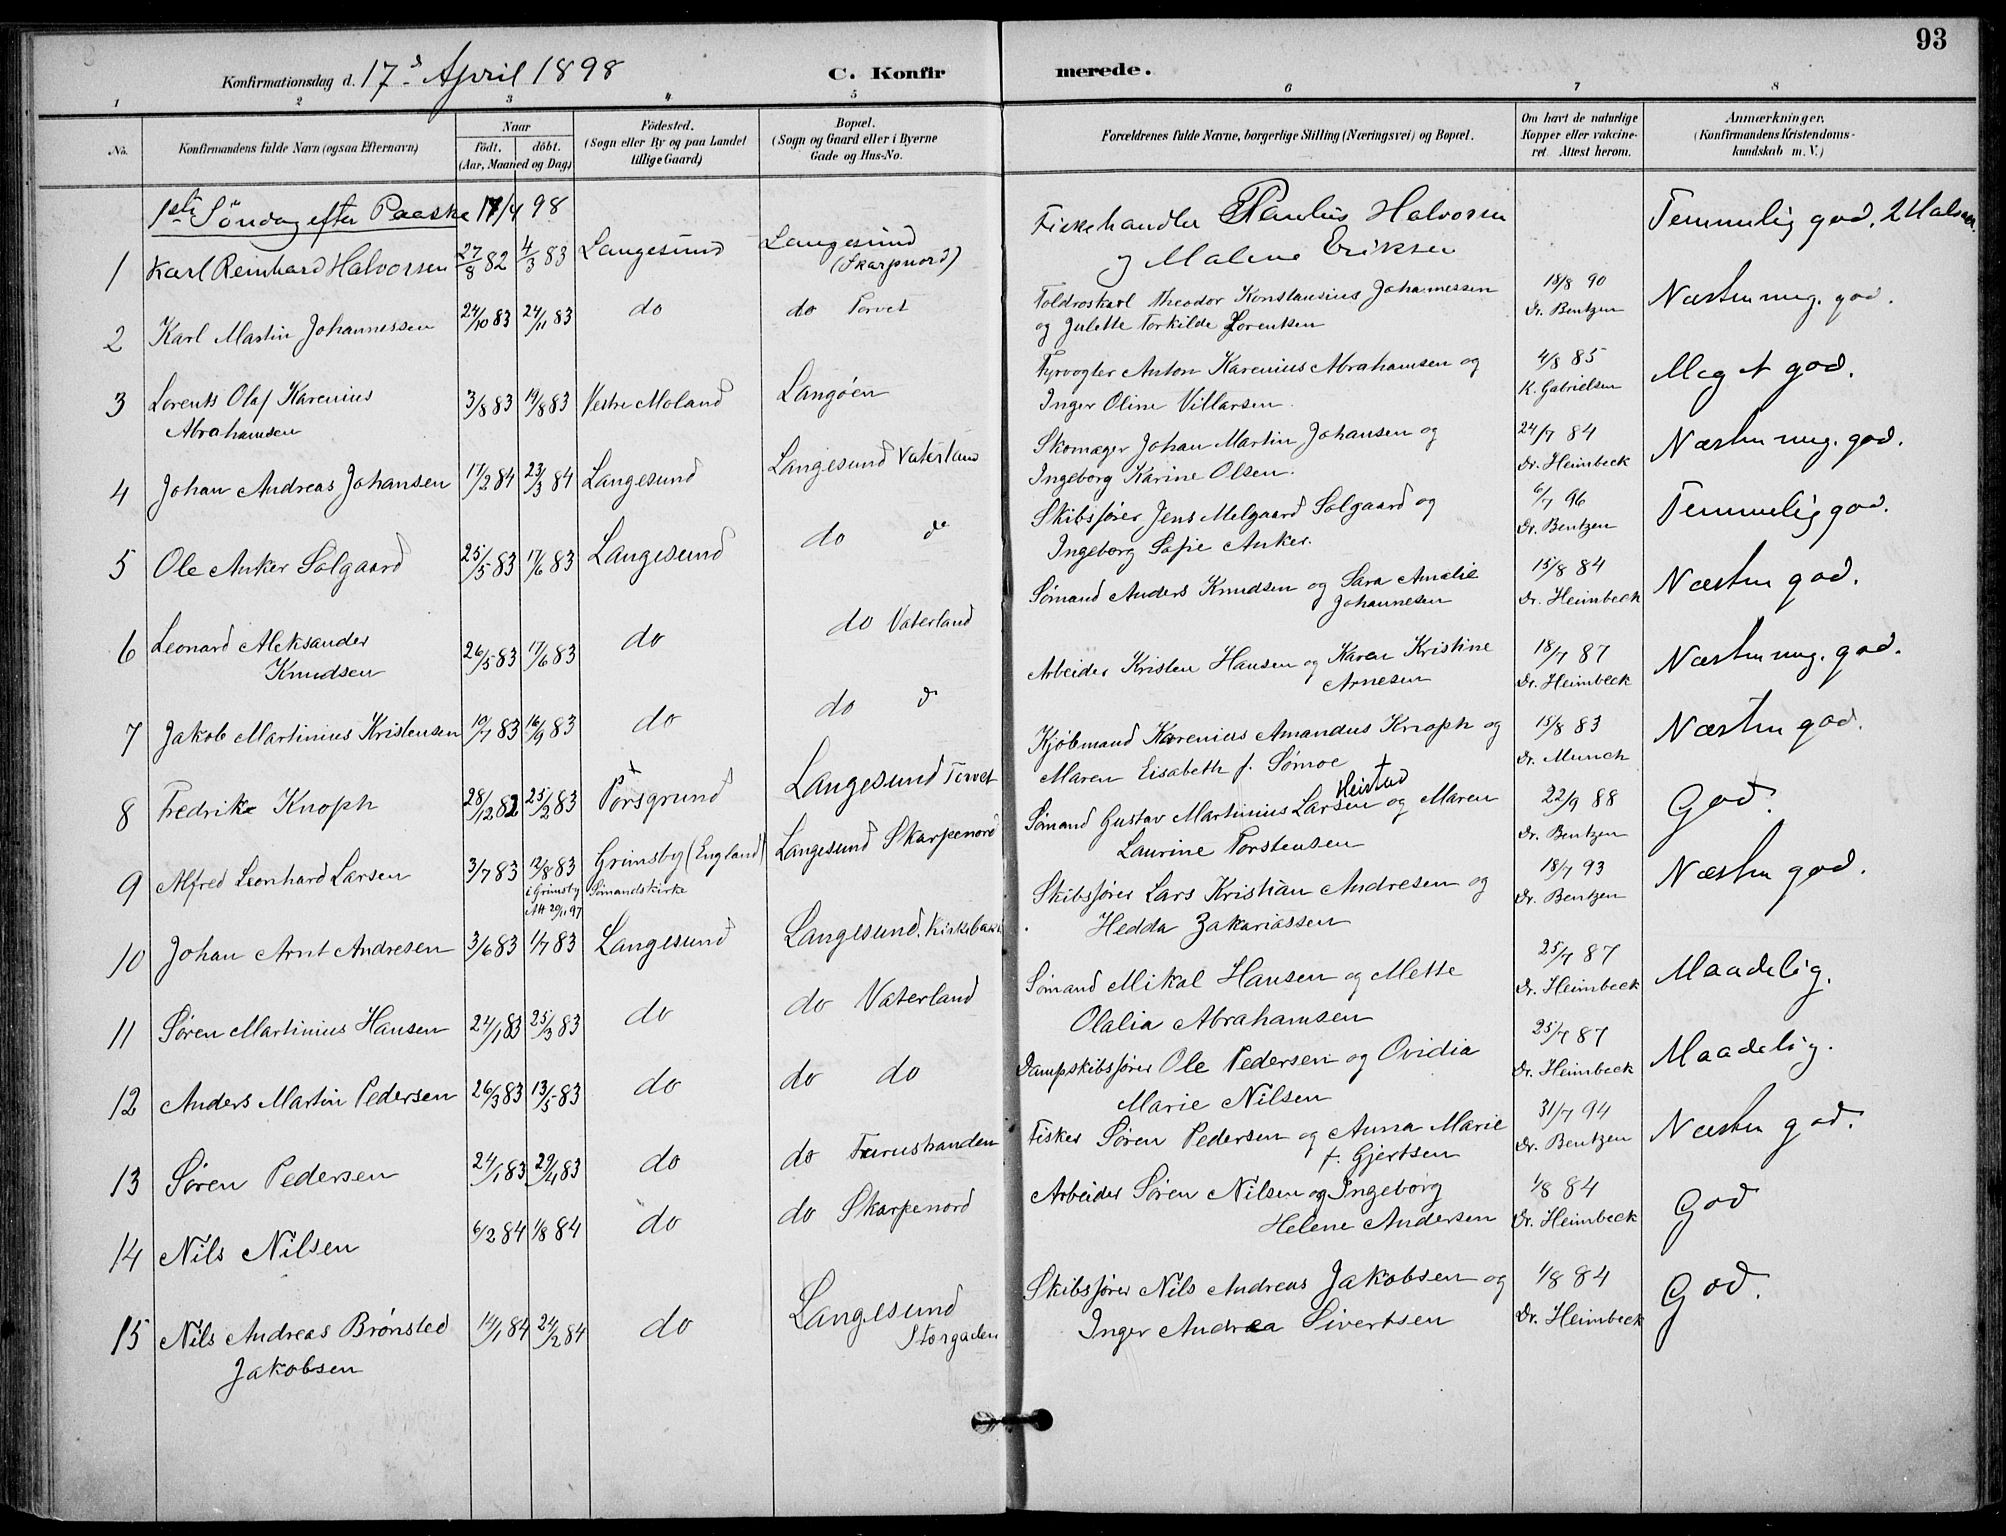 93
Konfirmationsdag d. 17. April 1898 C. Konfirmerede.
1 2 3 4 5 6 7 8
No. Konfirmandens fulde Navn (ogsaa Efternavn) Naar födt. döbt. (Aar, Maaned og Dag) Födested. (Sogn eller By og paa Landet tillige Gaard) Bopæl. (Sogn og Gaard eller i Byerne Gade og Hus-No. Forældrenes fulde Navne, borgerlige Stilling (Næringsvei) og Bopæl. Om havt de naturlige Kopper eller vakcineret. Attest herom. Anmærkninger. (Konfirmandens Kristendomskundskab m. V.)
1ste Söndag efter Paaske 17/4 98
1 Karl Reinhard Halvorsen 27/8 82 4/3 83 Langesund Langesund (Skarpnord) Fiskehandler Paulus Halvorsen og Malene Eriksen Temmelig god.
2 Karl Martin Johannessen 24/10 83 24/11 83 do do Torvet Toldroskarl Theodor Konstansius Johannessen og Julette Torkilde Lorentsen 18/8 90 Dr. Bentzen Næsten mg. god.
3 Lorents Olaf Karenius Abrahamsen 3/8 83 19/8 83 Vestre Moland Langöen Fyrvogter Anton Karenius Abrahamsen og Inger Oline Villarsen. 4/8 85 K. Gabrielsen Meget god.
4 Johan Andreas Johansen 17/2 84 23/3 84 Langesund Langesund Vaterland Skomager Johan Martin Johansen og Ingeborg Karine Olsen. 24/7 84 Dr. Heimbeck Næsten mg. god.
5 Ole Anker Solgaard 25/5 83 17/6 83 Langesund do do Skibsfører Jens Melgaard Solgaard og Ingeborg Sofie Anker. 6/7 96 Dr. Bentzen Temmelig god.
6 Leonard Aleksander Knudsen 26/5 83 17/6 83 do do Vaterland Sømand Anders Knudsen og Sara Amalie Johannesen 15/8 84 Dr. Heimbeck Næsten god.
7 Jakob Martinius Kristensen 10/7 83 16/9 83 do do do Arbeider Kristen Hansen og Karen Kristine Arnesen 18/7 87 Dr. Heimbeck Næsten mg. god.
8 Fredrike Knoph 28/12 82 25/2 83 Porsgrund Langesund Torvet Kjøbmand Karenius Amandus Knoph og Maren Eisabeth f. Sømoe 15/8 83 Dr. Munch Næsten god.
9 Alfred Leonhard Larsen 3/7 83 12/8 83 i Grimsby Att 20/11 97 Grimsby (England) Sømandskirke Langesund Skarpenord Sømand Gustav Martinius Larsen Heistad og Maren Laurine Torstensen 22/9 88 Dr. Bentzen God.
10 Johan Arnt Andresen 3/6 83 1/7 83 Langesund Langesund. Kirkebakk Skibsfører Lars Kristian Andresen og Hedda Zakariassen 18/7 93 Dr. Bentzen Næsten god.
11 Søren Martinius Hansen 24/1 83 25/3 83 do do Vaterland Sømand Mikal Hansen og Mette Olalia Abrahamsen 25/7 87 Dr. Heimbeck Maadelig.
12 Anders Martin Pedersen 26/3 83 13/5 83 do do do Dampskibsfører Ole Pedersen og Ovidia Marie Nilsen 25/7 87 Dr. Heimbeck Maadelig.
13 Søren Pedersen 24/1 83 29/4 83 do do Furustranden Fisker Søren Pedersen og Anna Marie f. Gjertsen 31/7 94 Dr. Bentzen Næsten god.
14 Nils Nilsen 6/2 84 1/8 84 do do Skarpenord Arbeider Søren Nilsen og Ingeborg Helene Andersen 1/8 84 Dr. Heimbeck God
15 Nils Andreas Brønsted Jakobsen 14/1 84 24/2 84 do Langesund Storgaden Skibsfører Nils Andreas Jakobsen og Inger Andrea Sivertsen 1/8 84 Dr. Heimbeck God.